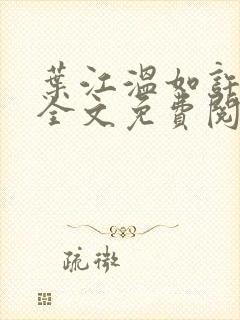 葉江溫如許
全文免費閱
疏微